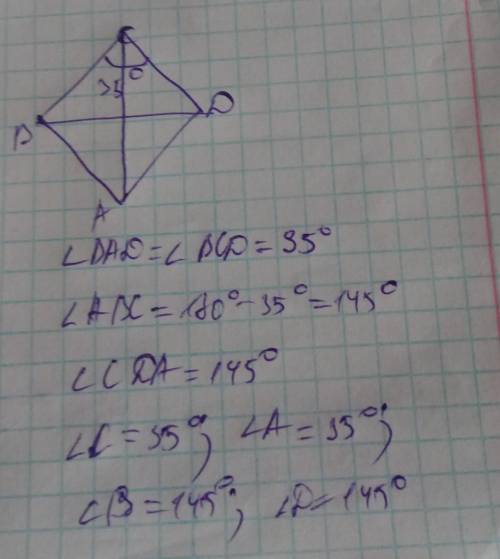 C
35°
B D
A
∠BAD = ∠BCD = 35°
∠ABC = 180° - 35° = 145°
∠CDA = 145°
∠C = 35°; ∠A = 35°;
∠B = 145°; ∠D = 145°